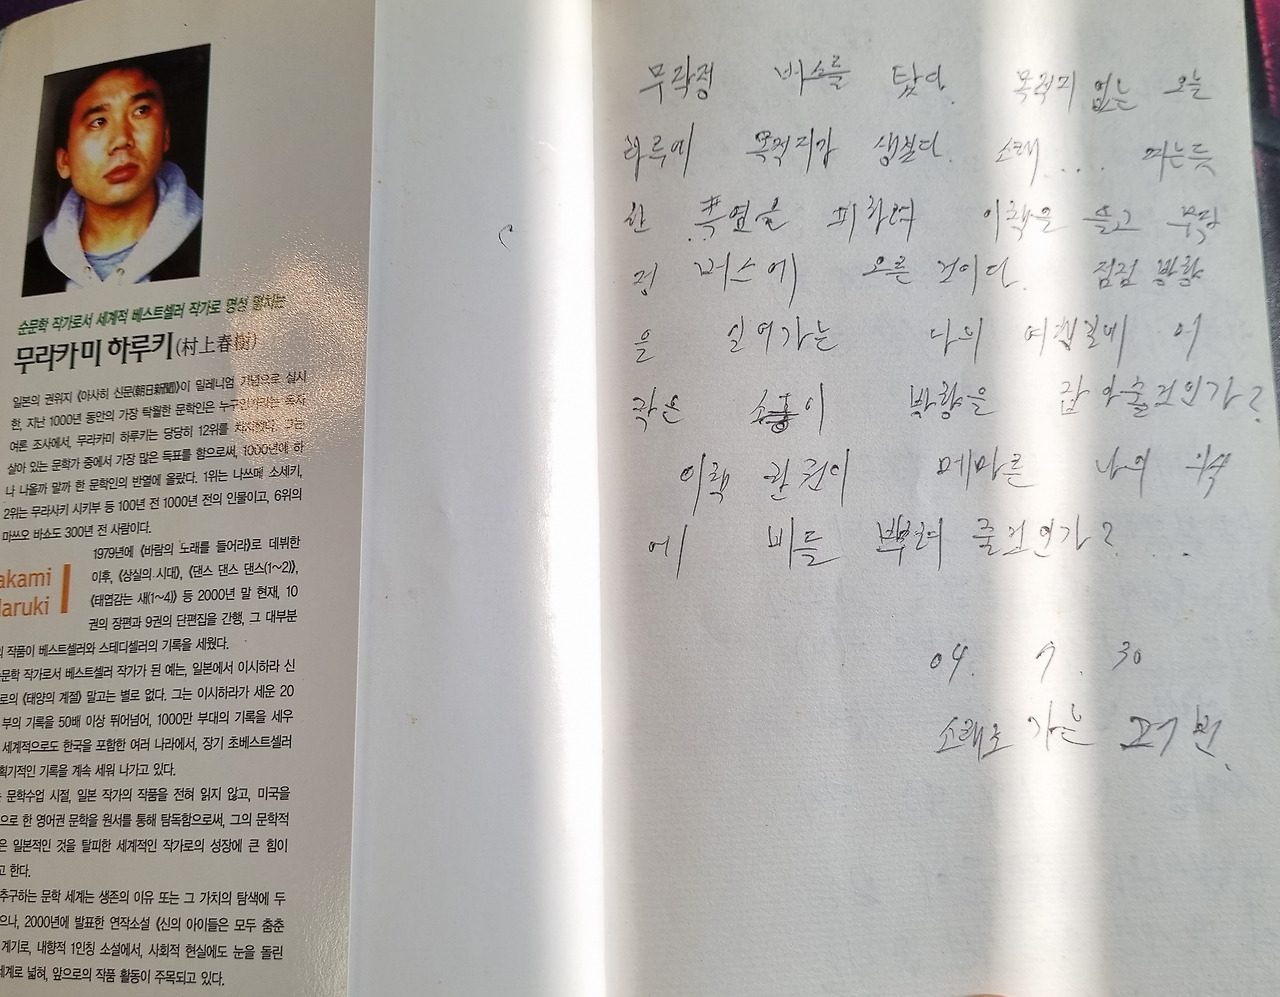 순문학 작가로서 세계적 베스트셀러 작가로 명성 떨치는
무라카미 하루키(村上春樹)
일본의 권위지 《아사히 신문(朝日新聞)》이 밀레니엄 기념으로 실시
한, 지난 1000년 동안의 가장 탁월한 문학인은 누구인가라는 독자
여론 조사에서, 무라카미 하루키는 당당히 12위를 차지했다. 그는
살아 있는 문학가 중에서 가장 많은 득표를 함으로써, 1000년에 하
나 나올까 말까 한 문학인의 반열에 올랐다. 1위는 나쓰메 소세키,
2위는 무라사키 시키부 등 100년 전 1000년 전의 인물이고, 6위의
마쓰오 바쇼도 300년 전 사람이다.
akami
aruki
1979년에 《바람의 노래를 들어라》로 데뷔한
이후, 《상실의 시대》, 《댄스 댄스 댄스(1~2)》,
《태엽감는 새(1~4)》 등 2000년 말 현재, 10
권의 장편과 9권의 단편집을 간행, 그 대부분
의 작품이 베스트셀러와 스테디셀러의 기록을 세웠다.
문학 작가로서 베스트셀러 작가가 된 예는, 일본에서 이시하라 신
로의 《태양의 계절》 말고는 별로 없다. 그는 이시하라가 세운 20
부의 기록을 50배 이상 뛰어넘어, 1000만 부대의 기록을 세우
세계적으로도 한국을 포함한 여러 나라에서, 장기 초베스트셀러
획기적인 기록을 계속 세워 나가고 있다.
문학수업 시절, 일본 작가의 작품을 전혀 읽지 않고, 미국을
으로 한 영어권 문학을 원서를 통해 탐독함으로써, 그의 문학적
은 일본적인 것을 탈피한 세계적인 작가로의 성장에 큰 힘이
고 한다.
추구하는 문학 세계는 생존의 이유 또는 그 가치의 탐색에 두
으나, 2000년에 발표한 연작소설 《신의 아이들은 모두 춤춘
계기로, 내향적 1인칭 소설에서, 사회적 현실에도 눈을 돌린
세계로 넓혀, 앞으로의 작품 활동이 주목되고 있다.
무작정 버스를 탔다. 목적지 없는 오늘
하루에 목적지가 생겼다. 소래.... 찌는듯
한 폭염을 피하여 이책을 들고 무작
정 버스에 오른 것이다. 점점 방향
을 잃어가는 나의 여행길에 이
작은 소홍이 방향을 잡아줄것인가?
이책 한권이 메마른 나의 가슴
에 비를 뿌려 줄것인가? ...
04. 7. 30
소래로 가는